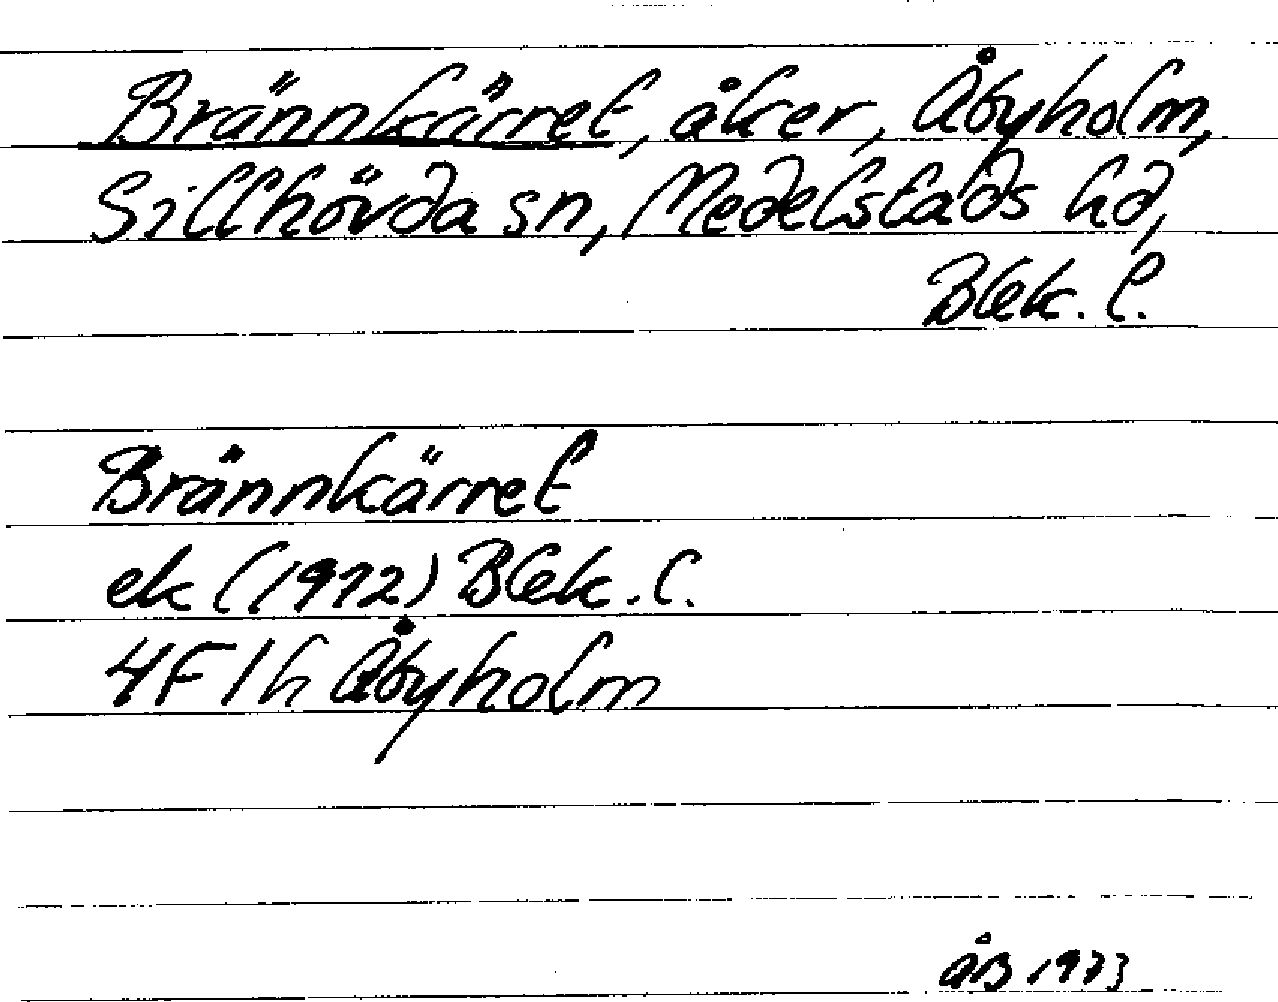 Brännkärret, åker, Åbyholm,
Sillhövda sn, Medelstads hd,
Blek. l.
Brännkärret
ek (1972) Blek. l.
4F 1h Åbyholm
åB 1973